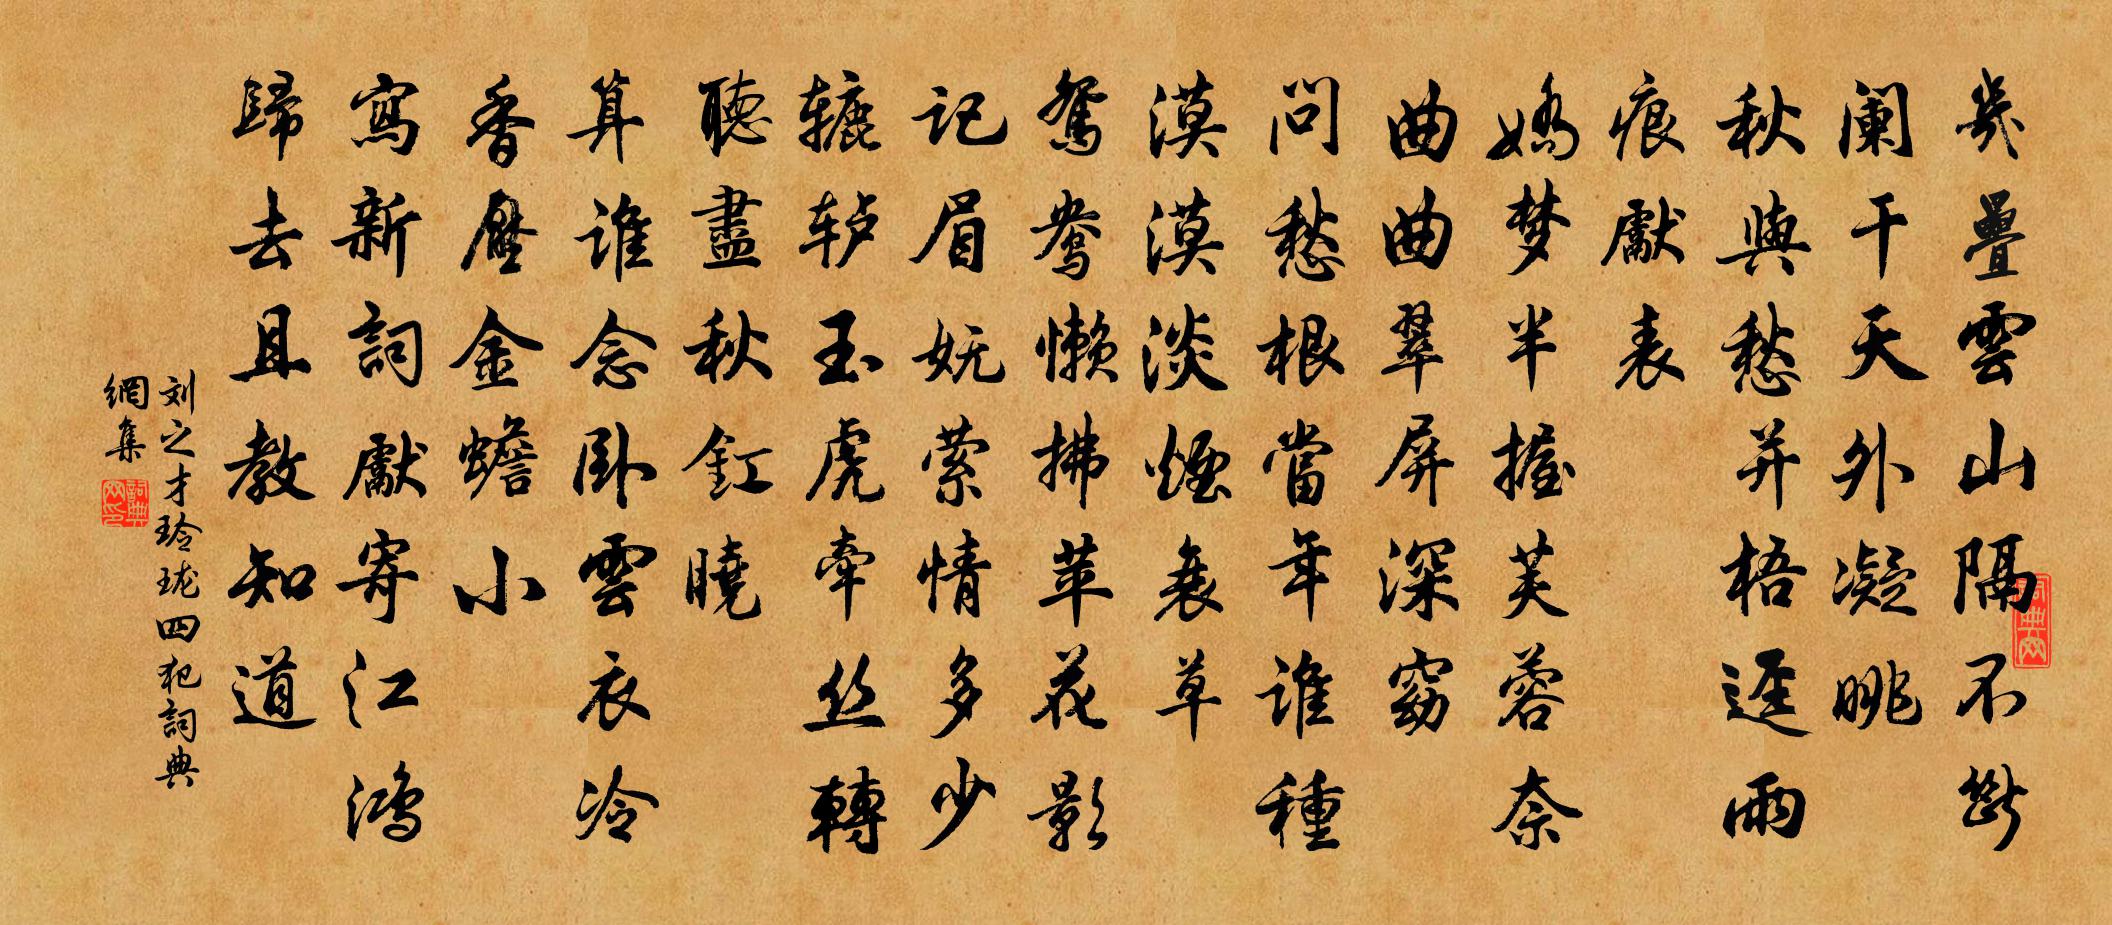 幾疊雲山隔不斷
阑干天外凝眺
秋與愁并梧邊雨
痕獻表
嬌梦半握芙蓉奈
曲曲翠屏深窈
問愁根當年誰種
漠漠淡煙衰草
鴛鴦懒拂苹花影
记眉妩萦情多少
辘轳玉虎牵丝轉
聽盡秋釭曉
算誰念卧雲衣冷
香壓金蟾小
寫新詞獻寄江鸿
歸去且教知道
刘之才玲珑四犯詞典
網集
詞典